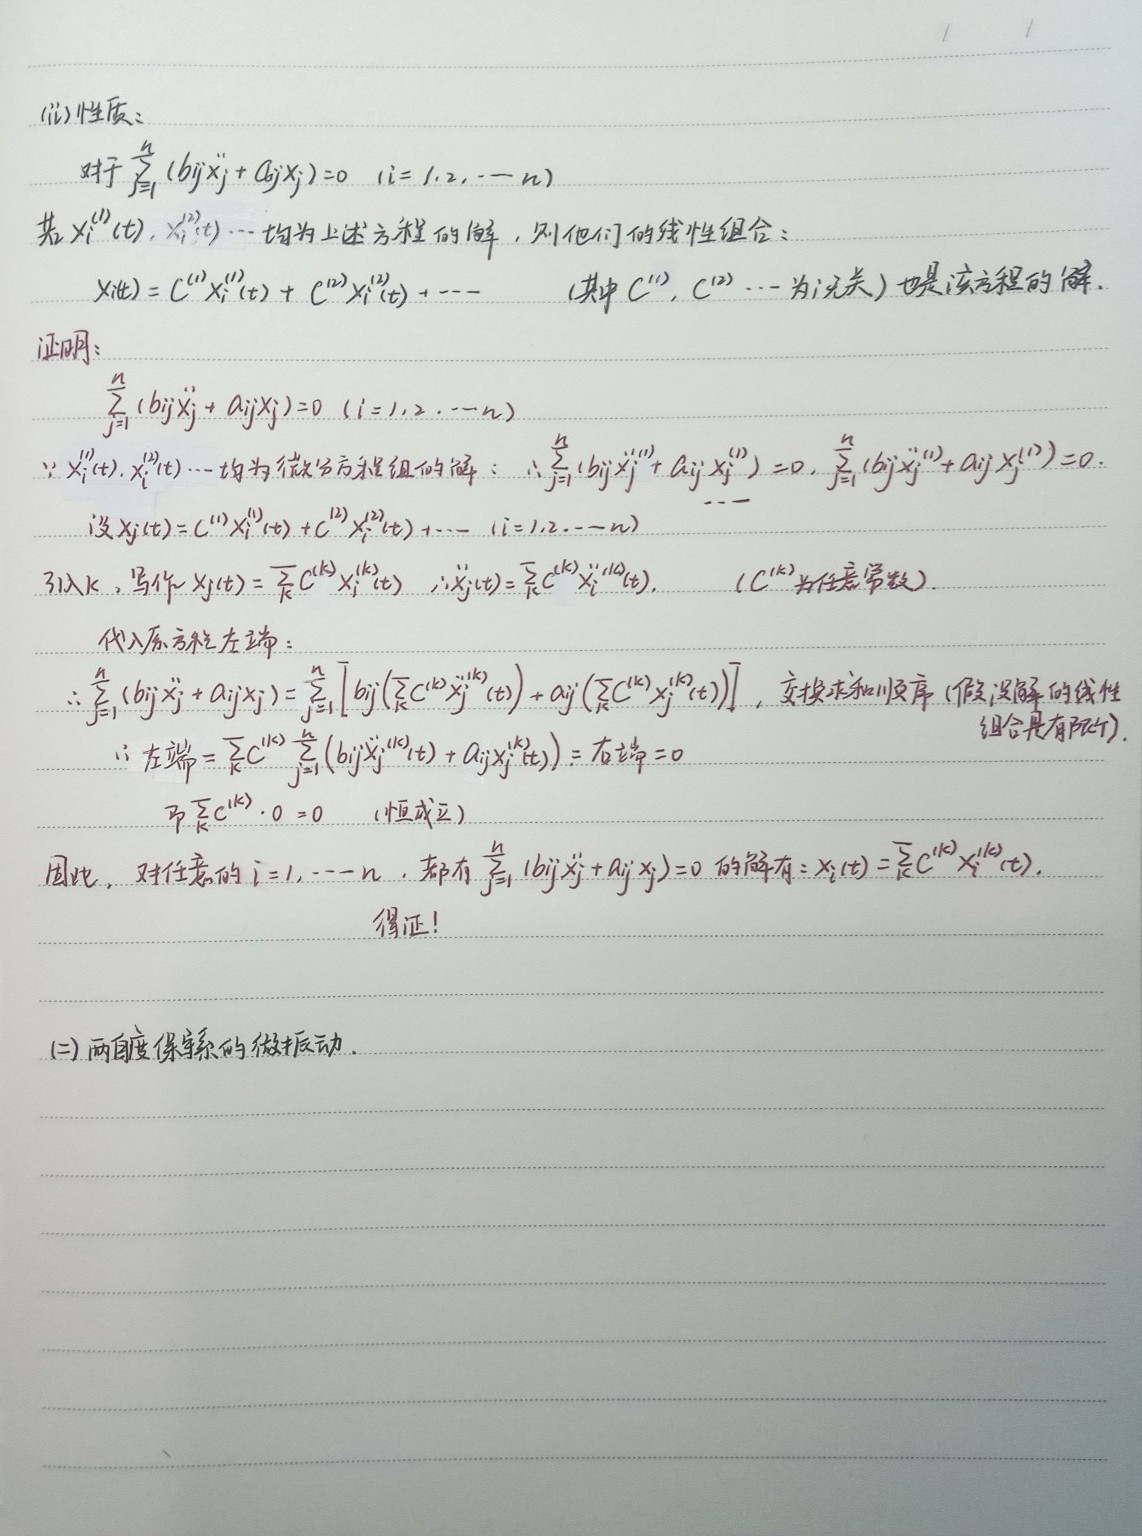 (ii)性质:
对于 $\sum_{j=1}^{n}(b_{ij}\ddot{x}_j+a_{ij}x_j)=0$ (i=1.2.……n)
若 $x_i^{(1)}(t)$. $x_i^{(2)}(t)$ …均为上述方程的解,则他们的线性组合:
$x_i(t)=C^{(1)}x_i^{(1)}(t)+C^{(2)}x_i^{(2)}(t)+\cdots$ (其中 $C^{(1)}$, $C^{(2)}$ … 为i无关)也是该方程的解.
证明:
$\sum_{j=1}^{n}(b_{ij}\ddot{x}_j+a_{ij}x_j)=0$ (i=1.2.……n)
∵ $x_i^{(1)}(t)$. $x_i^{(2)}(t)$ …均为微分方程组的解: ∴ $\sum_{j=1}^{n}(b_{ij}\ddot{x}_j^{(1)}+a_{ij}x_j^{(1)})=0$. $\sum_{j=1}^{n}(b_{ij}\ddot{x}_j^{(1)}+a_{ij}x_j^{(1)})=0$.
……
设 $x_j(t)=C^{(1)}x_i^{(1)}(t)+C^{(2)}x_i^{(2)}(t)+\cdots$ (i=1.2.……n)
引入k,写作 $x_j(t)=\sum_k C^{(k)}x_i^{(k)}(t)$ ∴ $\ddot{x}_j(t)=\sum_k C^{(k)}\ddot{x}_i^{(k)}(t)$. ($C^{(k)}$ 为任意常数).
代入原方程左端:
∴ $\sum_{j=1}^{n}(b_{ij}\ddot{x}_j+a_{ij}x_j)=\sum_{j=1}^{n}[b_{ij}(\sum_k C^{(k)}\ddot{x}_j^{(k)}(t))+a_{ij}(\sum_k C^{(k)}x_j^{(k)}(t))]$, 交换求和顺序(假设解的线性
组合是有限个).
∴ 左端 $=\sum_k C^{(k)}\sum_{j=1}^{n}(b_{ij}\ddot{x}_j^{(k)}(t)+a_{ij}x_j^{(k)}(t))$ = 右端 = 0
即 $\sum_k C^{(k)}\cdot 0=0$ (恒成立)
因此, 对任意的 i=1,……n, 都有 $\sum_{j=1}^{n}(b_{ij}\ddot{x}_j+a_{ij}x_j)=0$ 的解有: $x_i(t)=\sum_k C^{(k)}x_i^{(k)}(t)$.
得证!
(二)两自度保守系的微振动.